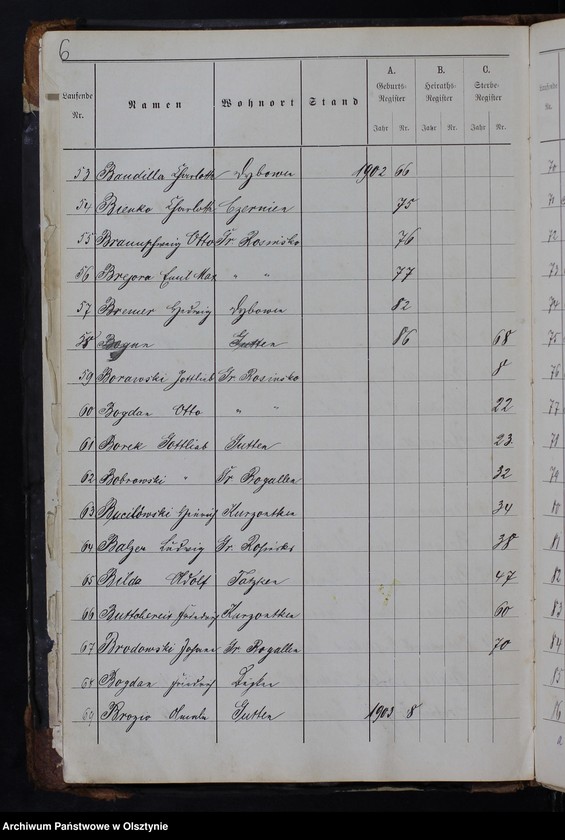 6
Laufende Nr. Namen Wohnort Stand A. Geburts-Register B. Heiraths-Register C. Sterbe-Register
Jahr Nr. Jahr Nr. Jahr Nr.
53 Bandilla Charlotte Dybowen 1902 66
54 Bienko Charlotte Czernien 75
55 Otto Gr. Rosinsko 76
56 Bregora Emil Max " " 77
57 Bremer Hedwig Dybowen 82
58 Gutten 86 68
59 Borawski Gottlieb Gr. Rosinsko 8
60 Bogdan Otto " " 22
61 Borek Gottlieb Gutten 23
62 Bobrowski " Gr. Rogallen 32
63 Kurzontken 34
64 Balzer Ludwig Gr. Rosinsko 38
65 Bilda Adolf 47
66 Friedrich Kurzontken 60
67 Brodowski Johann Gr. Rogallen 70
68 Bogdan Friedrich
69 Brozio Amalie Gutten 1903 8
70
71
72
73
74
75
76
77
78
79
80
81
82
83
84
85
86
Archiwum Państwowe w Olsztynie